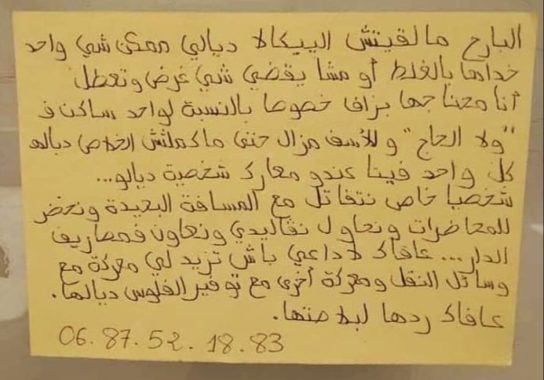 البارح مالقيتش البيكالا ديالي ممكن شي واحد
خداها بالغلط أو مشا يقضي شي غرض وتعطل
أنا محتاجها بزاف خصوصا بالنسبة لواحد ساكن ف
"ولا الحاج" وللأسف مزال حتى ماكملتش الخلاص ديالها
كل واحد فينا عندو معارك شخصية ديالو...
شخصيا خاص نتقاتل مع المسافة البعيدة ونحضر
للمحاضرات ونعاول نقاليدي ونعاون فمصاريف
الدار... عافاك لا داعي باش تزيد لي معركة مع
وسائل النقل ومعركة أخرى مع توفير الفلوس ديالها.
عافاك ردها لبلاصتها.
06. 87. 52. 18. 83